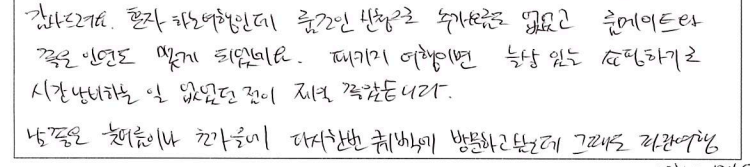 감사드려요. 혼자 하는여행인데 룸조인 신청으로 추가요금도 없었고 룸메이트와
좋은 인연도 맺게 되었네요. 패키지 여행이면 늘상 있는 쇼핑하기로
시간낭비하는 일 없었던 점이 제일 좋았습니다.
늦여름이나 초가을에 다시한번 퀘백에 방문하고 싶은데 그때도 파란여행